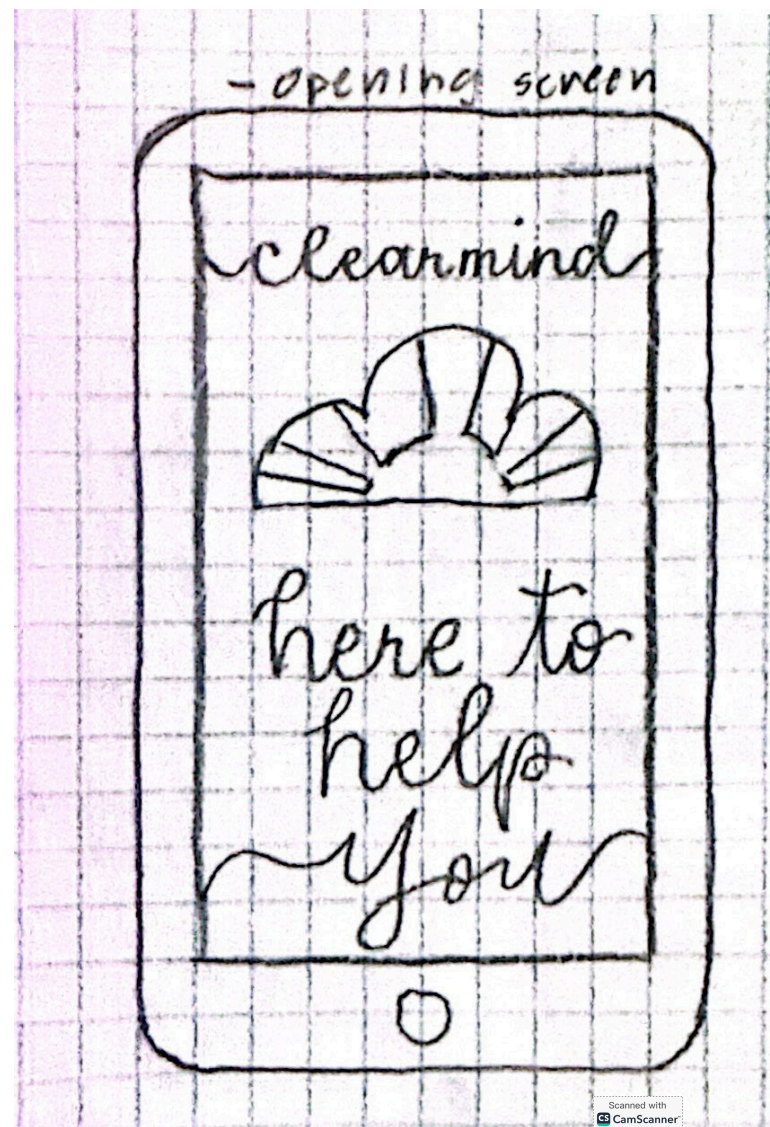 - opening screen
clearmind
here to
help
you
Scanned with
CS CamScanner